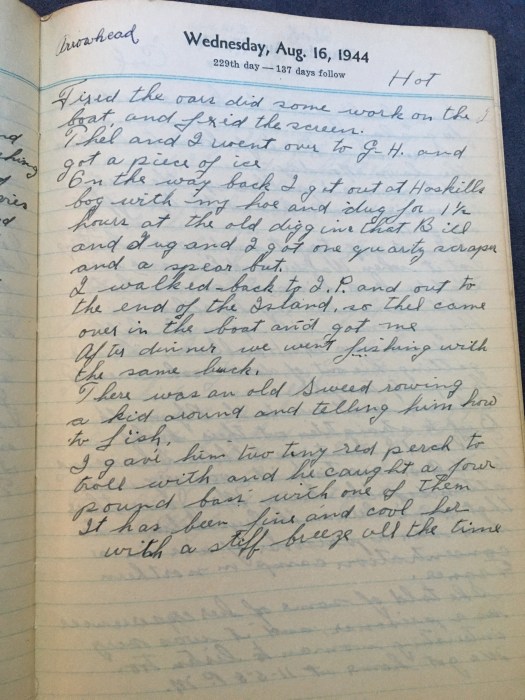 Arrowhead
Wednesday, Aug. 16, 1944
229th day — 137 days follow
Hot
Fixed the oars did some work on the
boat and fixid the screen.
Thel and I went over to G-H. and
got a piece of ice
On the way back I got out at Haskills
bog with my hoe and dug for 1½
hours at the old digging that Bill
and I dug and I got one quartz scraper
and a spear but.
I walked back to I. P. and out to
the end of the Island, so thel came
over in the boat and got me
After dinner we went fishing with
the same luck.
There was an old Sweed rowing
a kid around and telling him how
to fish.
I gave him two tiny red perch to
troll with and he caught a four
pound bass with one of them
It has been fine and cool her
with a stiff breeze all the time